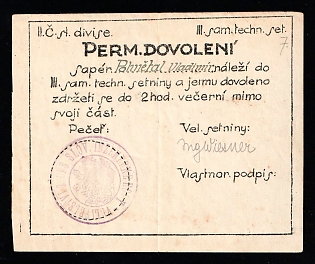 II. Č. sl. divise. III. sam. techn. set.
7
PERM. DOVOLENÍ
sapér. Vladimír, náleží do
III. sam. techn. setniny a jemu dovoleno
zdržeti se do 2 hod. večerní mimo
svoji část.
Pečeť: Vel. setniny:
Ing Wiesner
Vlastnor. podpis: